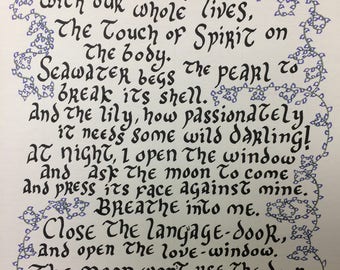 with our whole lives,
The Touch of Spirit on
the body.
Seawater begs the pearl to
break its shell.
and the lily, how passionately
it needs some wild darling!
at night, I open the window
and ask the moon to come
and press its face against mine.
Breathe into me.
Close the langage-door,
and open the love-window.
The Moon won't use the door